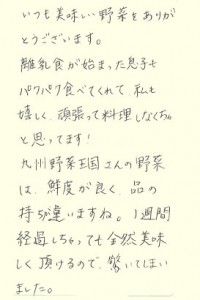 いつも美味しい野菜をありが
とうございます。
離乳食が始まった息子も
パクパク食べてくれて、私も
嬉しく、頑張って料理しなくちゃ
と思ってます!
九州野菜王国さんの野菜
は、鮮度が良く、品の
持ちが違いますね。1週間
経過しちゃっても全然美味
しく頂けるので、驚いてしまい
ました。